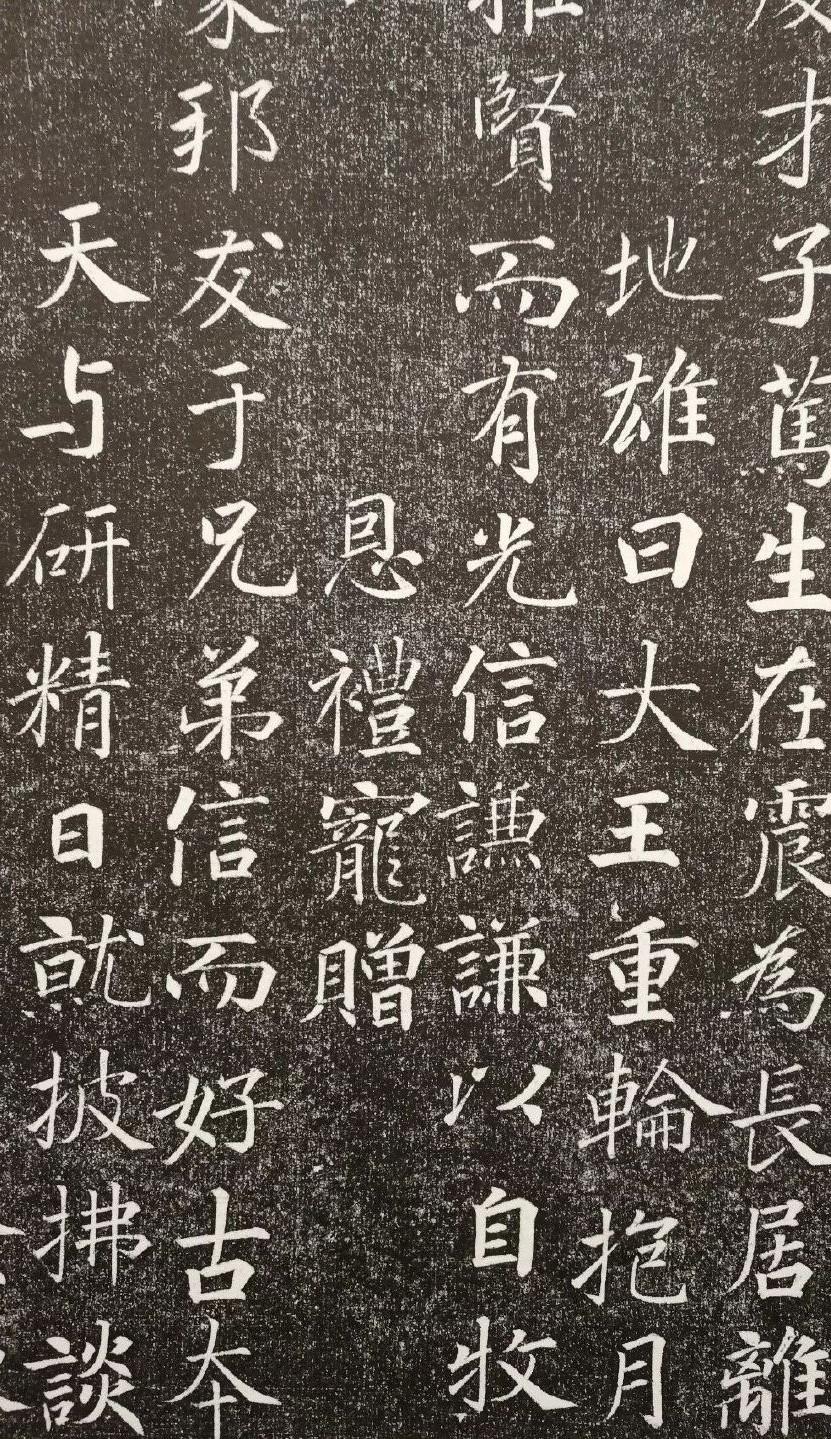 才子篤生在震為長居離
地雄曰大王重輪抱月
賢而有光信譙謙以自牧
恩禮寵贈
邦友于兄弟信而好古本
天与研精日就披拂談